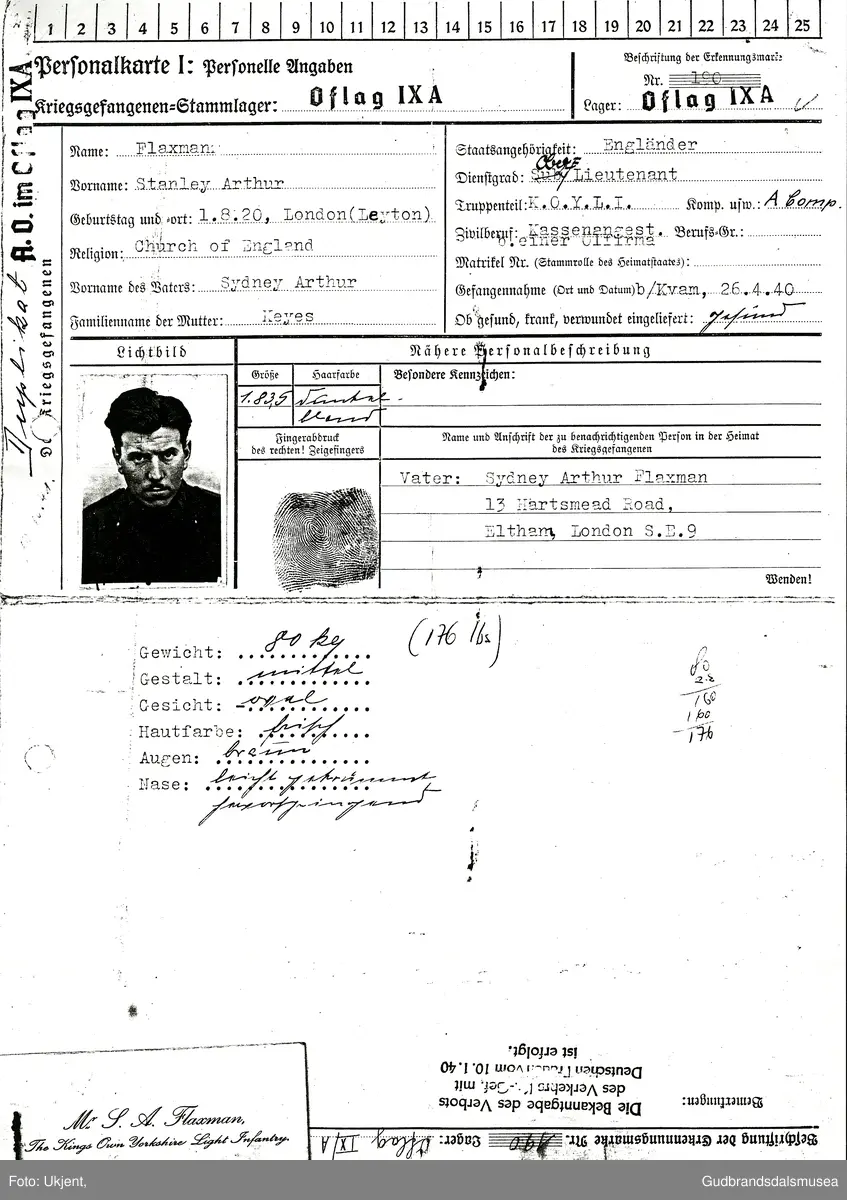 1 2 3 4 5 6 7 8 9 10 11 12 13 14 15 16 17 18 19 20 21 22 23 24 25
Personalkarte I: Personelle Angaben
Kriegsgefangenen-Stammlager: Oflag IX A
Beschriftung der Erkennungsmarke
Nr. 190
Lager: Oflag IX A
Duplikat
A. O. im Oflag IXA
Des Kriegsgefangenen
Name: Flaxman
Vorname: Stanley Arthur
Geburtstag und -ort: 1.8.20, London(Leyton)
Religion: Church of England
Vorname des Vaters: Sydney Arthur
Familienname der Mutter: Keyes
Staatsangehörigkeit: Engländer
Ober=
Dienstgrad: Sub/Lieutenant
Truppenteil: K.O.Y.L.I. Komp. usw.: A Comp.
Zivilberuf: Kassenangest. Berufs-Gr.:
b.einer Ölfirma
Matrikel Nr. (Stammrolle des Heimatstaates):
Gefangennahme (Ort und Datum) b/Kvam, 26.4.40
Ob gesund, krank, verwundet eingeliefert: gesund
Lichtbild
Nähere Personalbeschreibung
Größe
1.83,5
Haarfarbe
dunkel-
blond
Besondere Kennzeichen:
Fingerabdruck
des rechten! Zeigefingers
Name und Anschrift der zu benachrichtigenden Person in der Heimat
des Kriegsgefangenen
Vater: Sydney Arthur Flaxman
13 Hartsmead Road,
Eltham, London S.E.9
Wenden!
Gewicht: 80 kg (176 lbs)
Gestalt: mittel
Gesicht: oval
Hautfarbe: frisch
Augen: braun
Nase: leicht gekrümmt
80
2.2
160
160
176
Beschriftung der Erkennungsmarke Nr. 190 Lager: Oflag IX/A
Bemerkungen:
Die Bekanntgabe des Verbots
des Verkehrs Kr.-Gef. mit
Deutschen Frauen vom 10.1.40
ist erfolgt.
Mr S. A. Flaxman,
The Kings Own Yorkshire Light Infantry.
Foto: Ukjent,
Gudbrandsdalsmusea